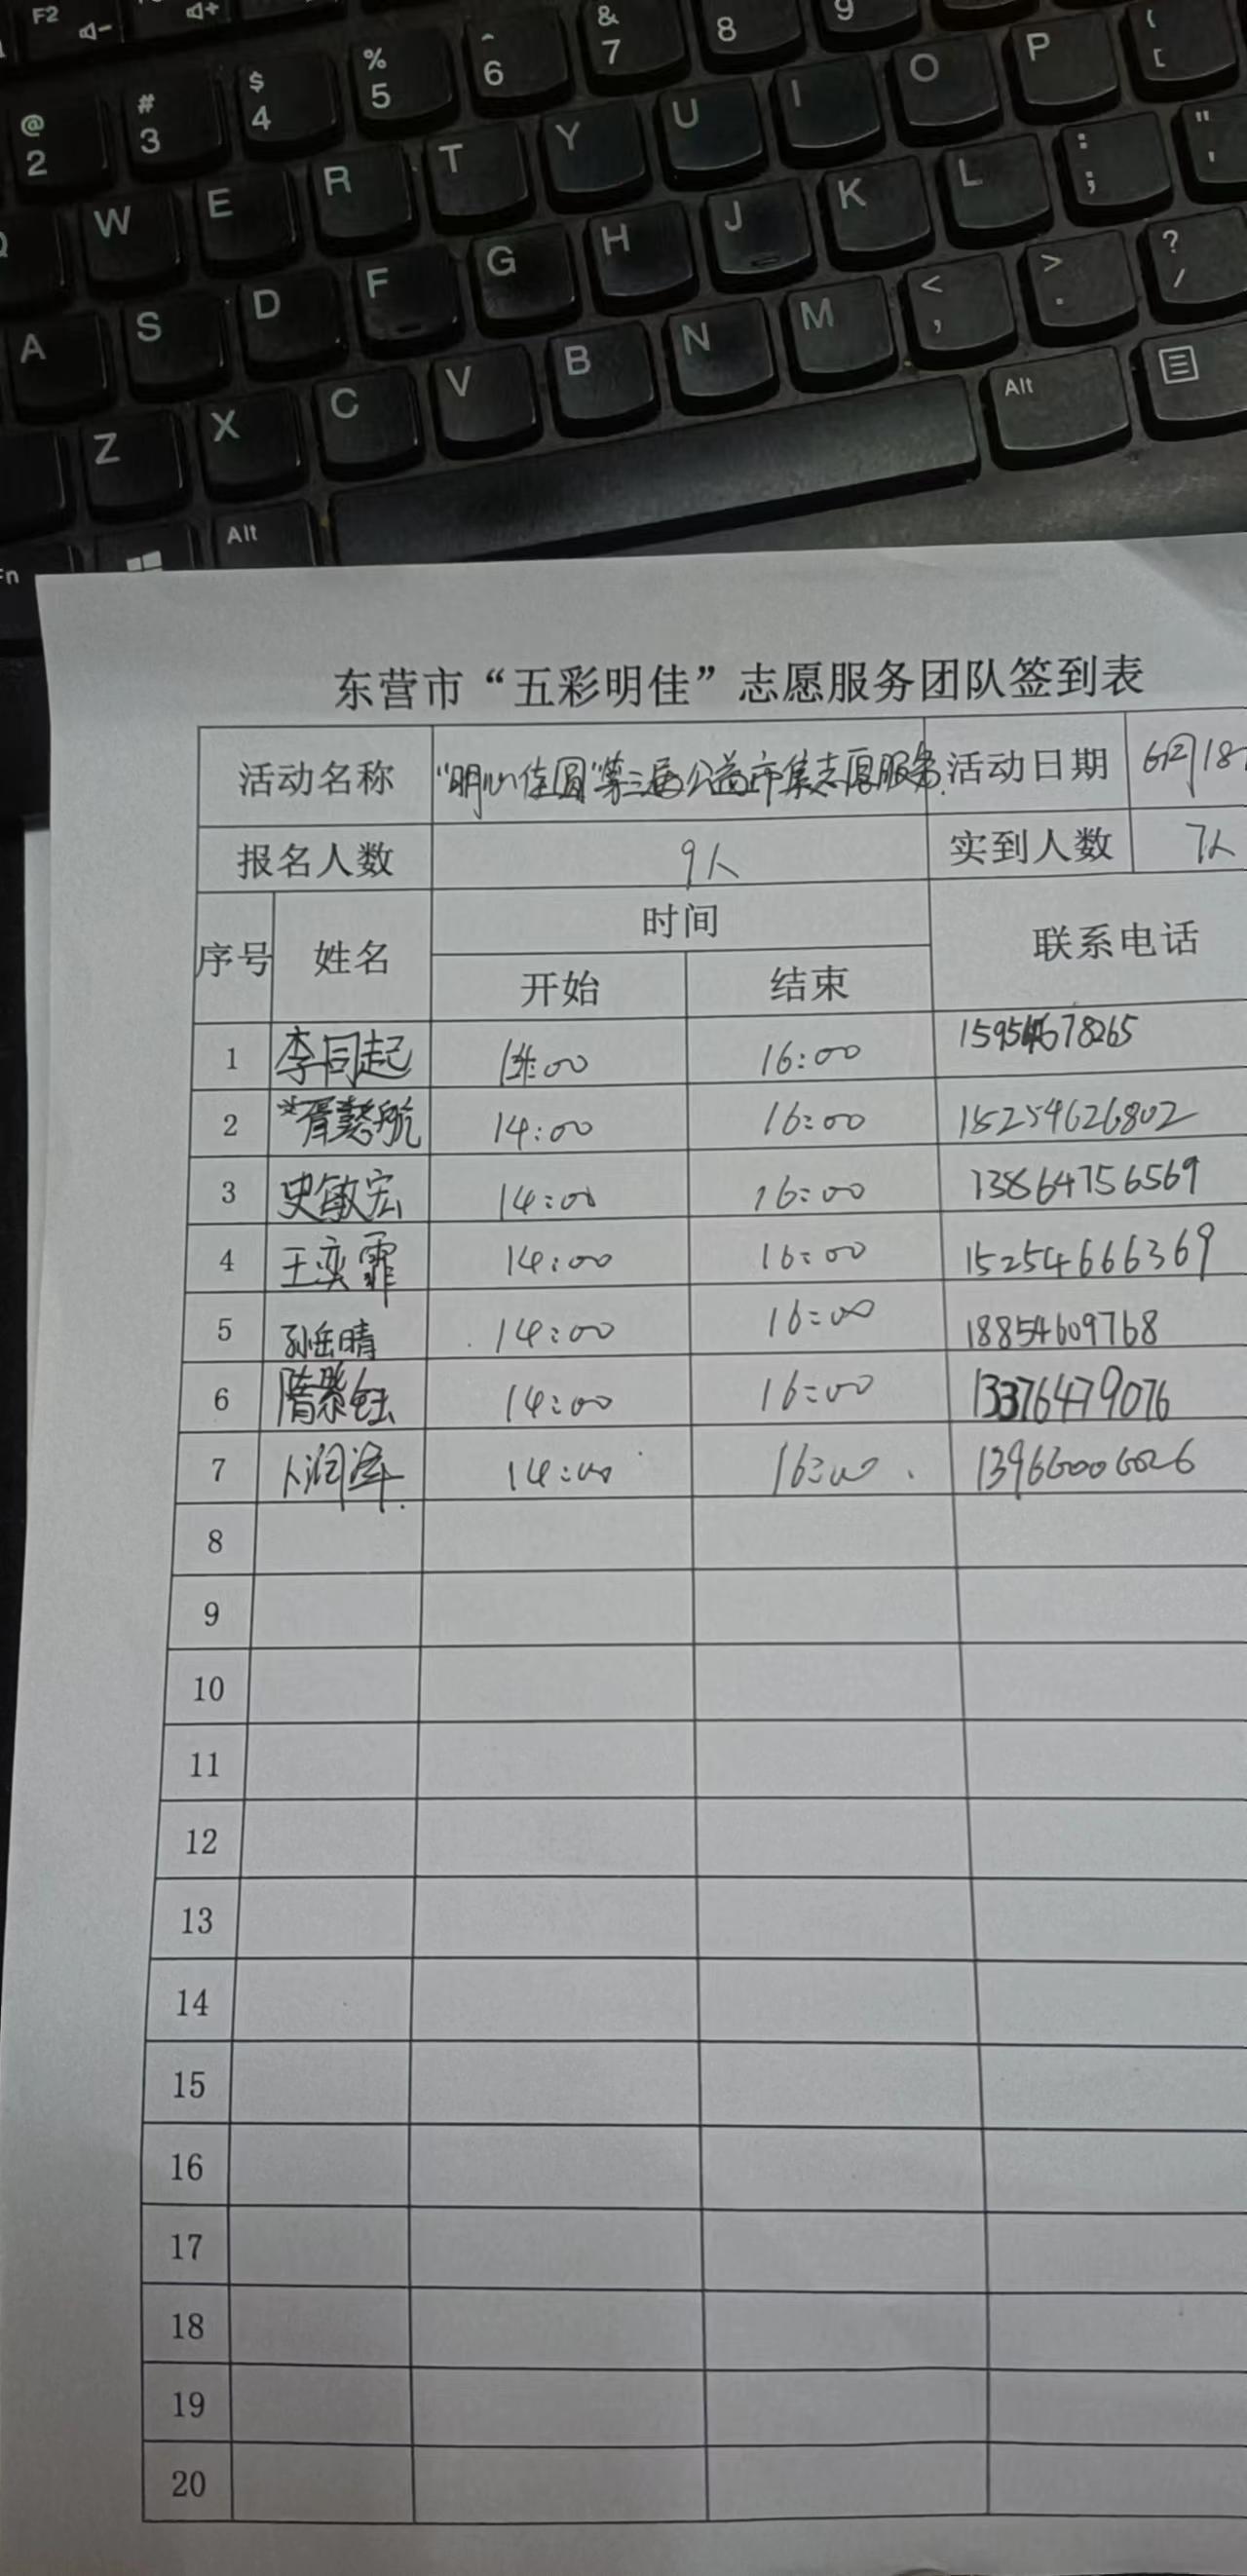 F2
@ 2 # 3 $ 4 % 5 ^ 6 & 7 8 9
W E R T Y U I O P [
A S D F G H J K L : ; " '
Z X C V B N M < , > . ? /
Fn Alt Alt
东营市“五彩明佳”志愿服务团队签到表
活动名称 “明心佳圆”第三届公益市集志愿服务. 活动日期 6月18
报名人数 9人 实到人数 7人
序号 姓名 时间 联系电话
开始 结束
1 李同起 14:00 16:00 15954678265
2 胥懿航 14:00 16:00 15254626802
3 史敏宏 14:00 16:00 13864756569
4 王奕霏 14:00 16:00 15254666369
5 孙岳晴 14:00 16:00 18854609768
6 隋紫钰 14:00 16:00 13376479076
7 卜润泽 14:00 16:00 13966006026
8
9
10
11
12
13
14
15
16
17
18
19
20